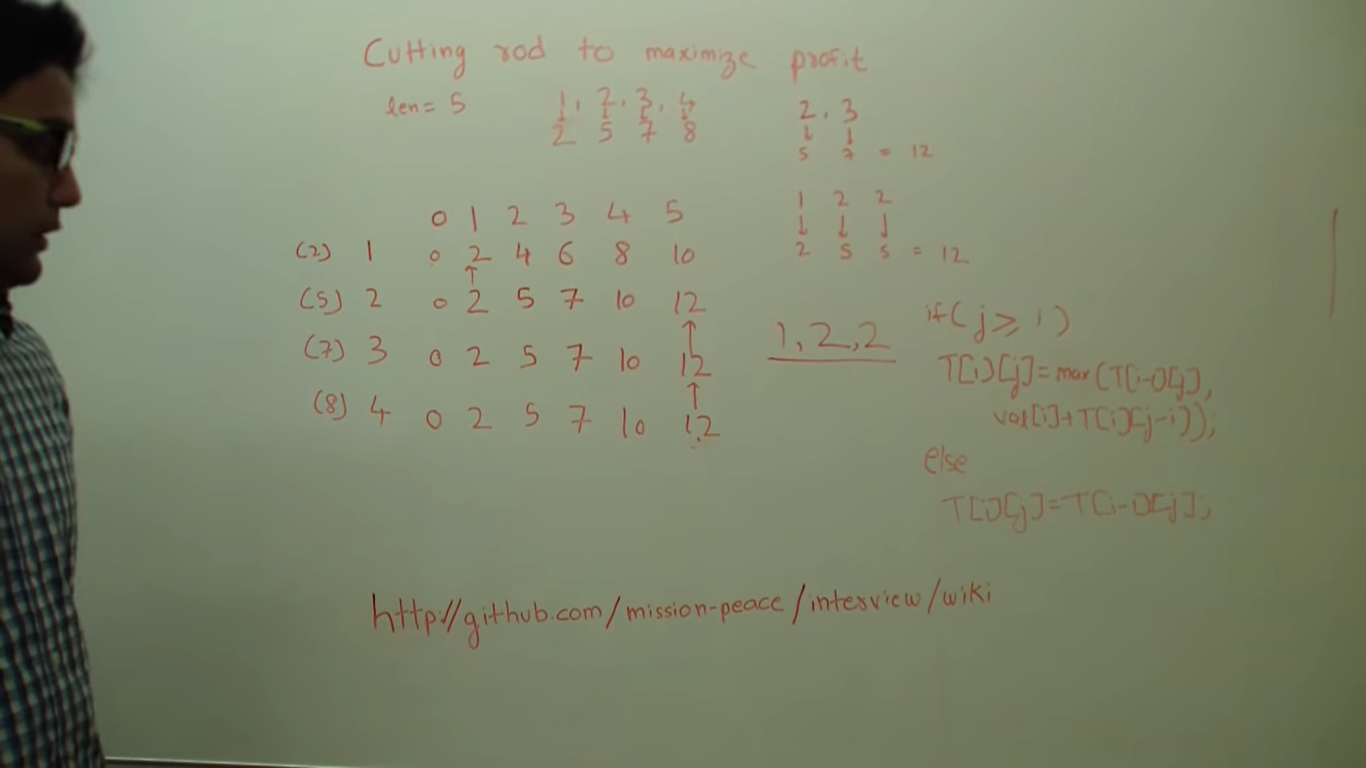 Cutting rod to maximize profit
len = 5
1, 2, 3, 4
2 5 7 8
2, 3
5 7 = 12
1 2 2
2 5 5 = 12
0 1 2 3 4 5
(2) 1 0 2 4 6 8 10
(5) 2 0 2 5 7 10 12
(7) 3 0 2 5 7 10 12
(8) 4 0 2 5 7 10 12
1, 2, 2
if( j ≥ i )
T[i][j] = max(T[i-1][j],
val[i]+T[i][j-i]);
else
T[i][j] = T[i-1][j];
http://github.com/mission-peace/interview/wiki